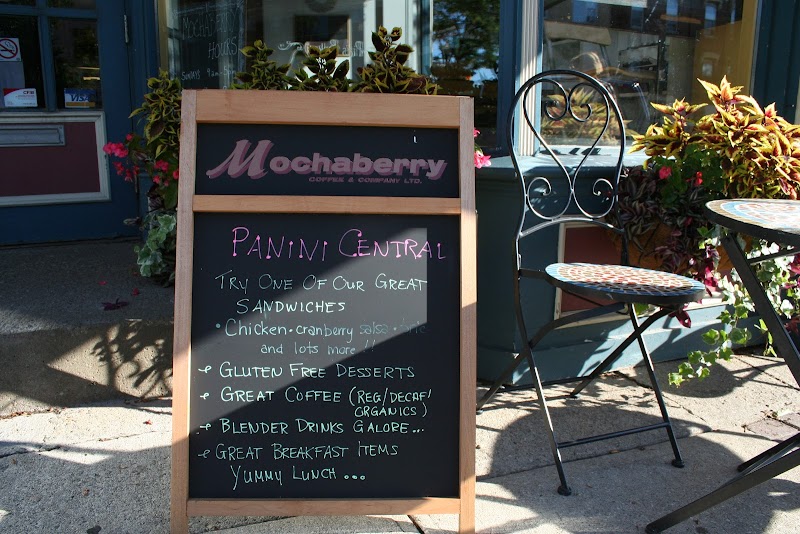 MOCHABERRY
HOURS
Mochaberry
COFFEE & COMPANY LTD.
PANINI CENTRAL
TRY ONE OF OUR GREAT
SANDWICHES
• Chicken • cranberry salsa • brie
and lots more !!
GLUTEN FREE DESSERTS
GREAT COFFEE (REG/DECAF/
ORGANICS)
BLENDER DRINKS GALORE...
GREAT BREAKFAST ITEMS
YUMMY LUNCH...